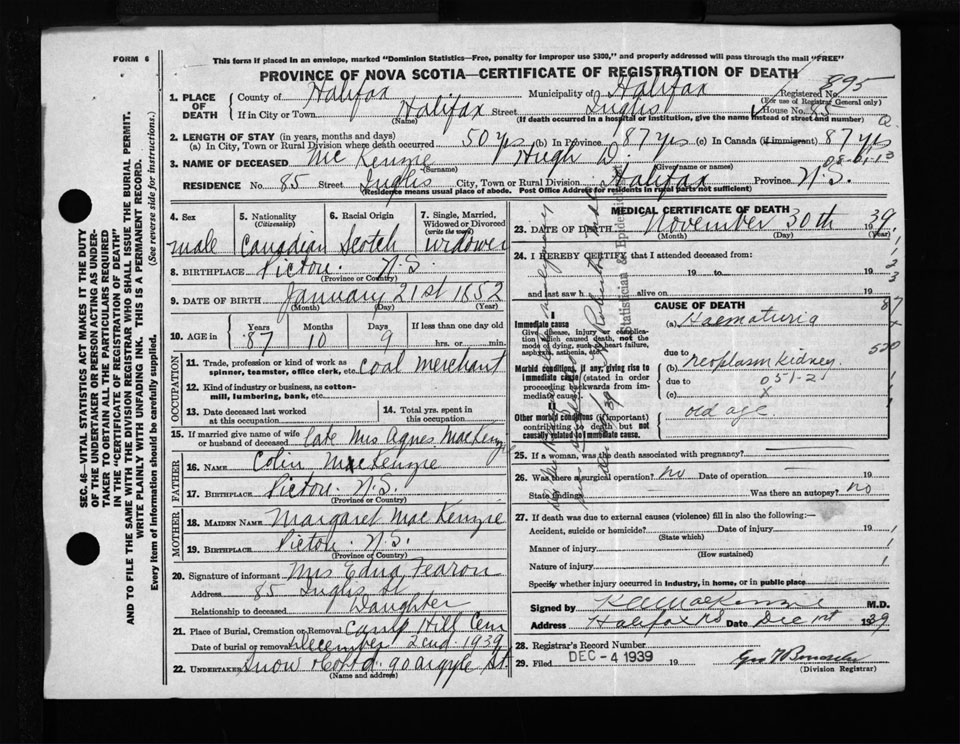 FORM 6
This form if placed in an envelope, marked "Dominion Statistics—Free, penalty for improper use $300," and properly addressed will pass through the mail "FREE"
PROVINCE OF NOVA SCOTIA—CERTIFICATE OF REGISTRATION OF DEATH
1. PLACE OF DEATH
County of Halifax Municipality of Halifax Registered No. 895
(For use of Registrar General only)
If in City or Town Halifax Street Inglis House No. 85
(Name) (If death occurred in a hospital or institution, give the name instead of street and number)
2. LENGTH OF STAY (in years, months and days)
(a) In City, Town or Rural Division where death occurred 50 yrs (b) In Province 87 yrs (c) In Canada (if immigrant) 87 yrs
3. NAME OF DECEASED Mc Kenzie Hugh D.
(Surname) (Given name or names)
05-01-13
RESIDENCE No. 85 Street Inglis City, Town or Rural Division Halifax Province N.S.
(Residence means usual place of abode. Post Office Address for residents in rural parts not sufficient)
4. Sex
male
5. Nationality
(Citizenship)
Canadian
6. Racial Origin
Scotch
7. Single, Married, Widowed or Divorced
(write the word)
widower
8. BIRTHPLACE Pictou. N.S.
(Province or Country)
9. DATE OF BIRTH January 21st 1852
(Month) (Day) (Year)
10. AGE in Years 87 Months 10 Days 9 If less than one day old
hrs. or min.
OCCUPATION
11. Trade, profession or kind of work as spinner, teamster, office clerk, etc. coal merchant
12. Kind of industry or business, as cotton-mill, lumbering, bank, etc.
13. Date deceased last worked at this occupation
14. Total yrs. spent in this occupation
15. If married give name of wife or husband of deceased late Mrs Agnes MacKenzie
FATHER
16. NAME Colin MacKenzie
17. BIRTHPLACE Pictou N.S.
(Province or Country)
MOTHER
18. MAIDEN NAME Margaret Mac Kenzie
19. BIRTHPLACE Pictou. N.S.
(Province or Country)
20. Signature of informant Mrs Edna Fearon
Address 85 Inglis St
Relationship to deceased Daughter
21. Place of Burial, Cremation or Removal Camp Hill Cem
Date of burial or removal December 2nd 1939
22. UNDERTAKER Snow & Co Ltd. 90 Argyle St.
(Name and address)
MEDICAL CERTIFICATE OF DEATH
23. DATE OF DEATH November 30th 1939
(Month) (Day) (Year)
24. I HEREBY CERTIFY that I attended deceased from:
19 to 19
and last saw h alive on 19
I
Immediate cause
Give disease, injury or complication which caused death, not the mode of dying, such as heart failure, asphyxia, asthenia, etc.
Morbid conditions, if any, giving rise to immediate cause (stated in order proceeding backwards from immediate cause).
II
Other morbid conditions (if important) contributing to death but not causally related to immediate cause.
CAUSE OF DEATH
(a) Haematuria
due to
(b) neoplasm kidney
due to 051-2
(c) x
old age
87
520
25. If a woman, was the death associated with pregnancy?
26. Was there a surgical operation? no Date of operation 19
State findings Was there an autopsy? no
27. If death was due to external causes (violence) fill in also the following:
Accident, suicide or homicide? Date of injury 19
(State which)
Manner of injury
(How sustained)
Nature of injury
Specify whether injury occurred in industry, in home, or in public place
Signed by K A MacKenzie M.D.
Address Halifax NS Date Dec 1st 1939
28. Registrar's Record Number
29. Filed DEC - 4 1939 19
(Division Registrar)
SEC. 46—VITAL STATISTICS ACT MAKES IT THE DUTY OF THE UNDERTAKER OR PERSON ACTING AS UNDERTAKER TO OBTAIN ALL THE PARTICULARS REQUIRED IN THE "CERTIFICATE OF REGISTRATION OF DEATH"
AND TO FILE THE SAME WITH THE DIVISION REGISTRAR WHO SHALL ISSUE THE BURIAL PERMIT.
WRITE PLAINLY WITH UNFADING INK. THIS IS A PERMANENT RECORD.
Every item of information should be carefully supplied. (See reverse side for instructions.)